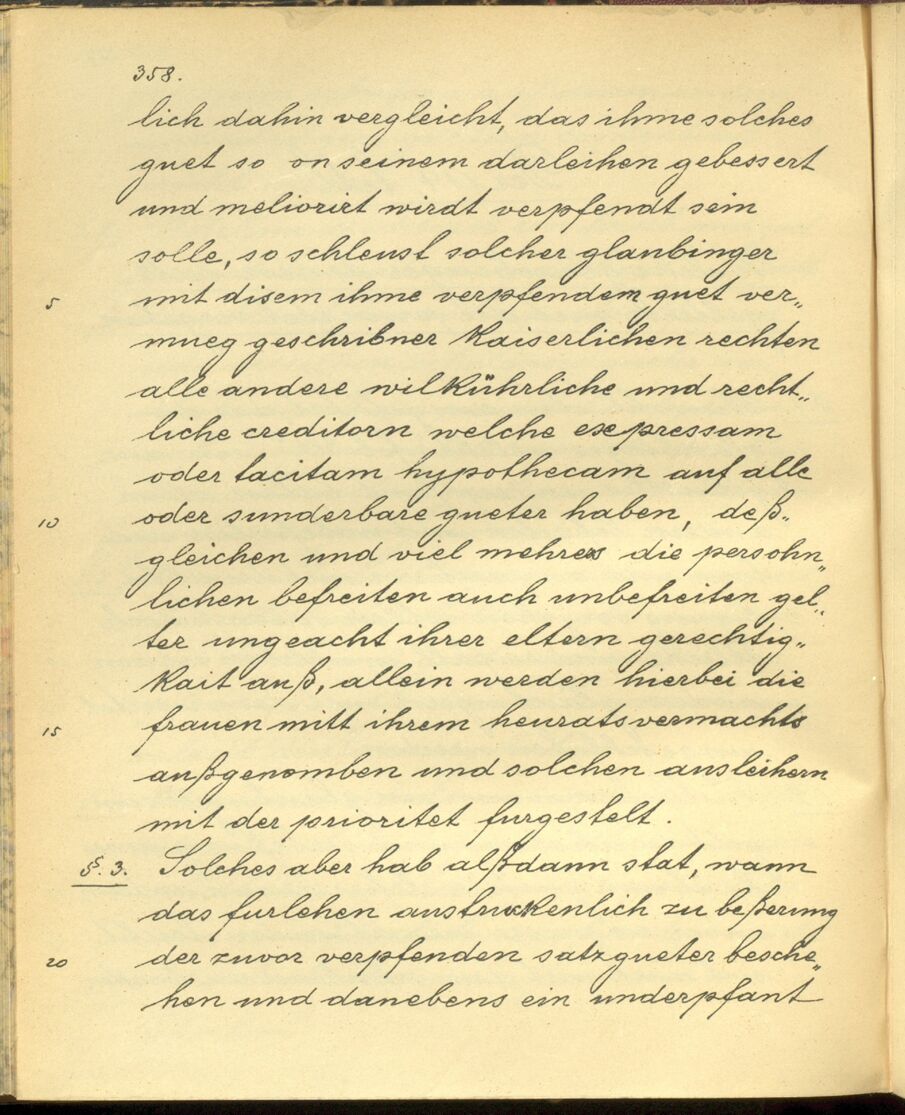 358.
lich dahin vergleicht, das ihme solches
guet so on seinem darleihen gebessert
und meliorirt wirdt verpfendt sein
solle, so schleust solcher glaubinger
5 mit disem ihme verpfendem guet ver„
mueg geschribner Kaiserlichen rechten
alle andere wilkührliche und recht„
liche creditorn welche expressam
oder tacitam hypothecam auf alle
10 oder sunderbare gueter haben, deß„
gleichen und viel mehrers die persohn„
lichen befreiten auch unbefreiten gel„
ter ungeacht ihrer eltern gerechtig„
kait auß, allein werden hierbei die
15 frauen mitt ihrem heuratsvermachts
außgenomben und solchen ausleihern
mit der prioritet furgestelt.
§. 3. Solches aber hab alßdann stat, wann
das furlehen austruckenlich zu beßerung
20 der zuvor verpfenden satzgueter besche„
hen und danebens ein underpfant